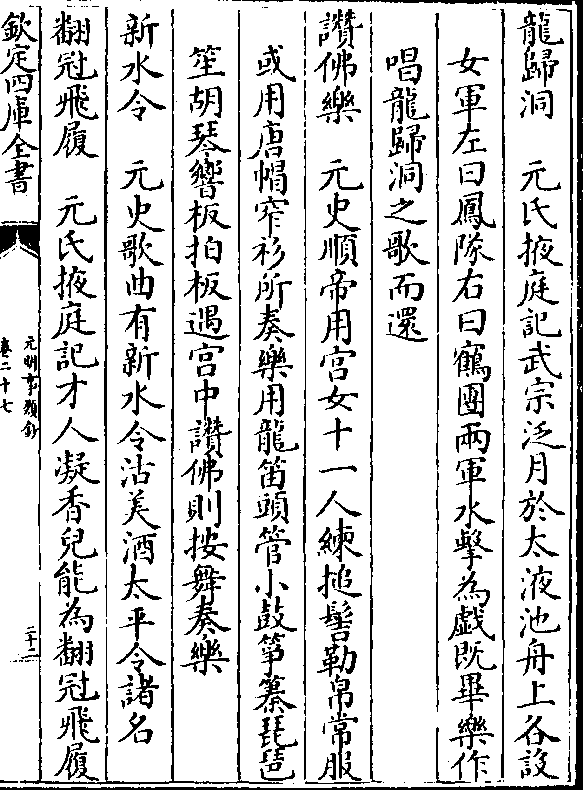 龍歸洞　元氏掖庭記武宗泛月於太液池舟上各設
女軍左曰鳳隊右曰鶴團兩軍水擊為戲既畢樂作
唱龍歸洞之歌而還
讚佛樂　元史順帝用宫女十一人練搥髻勒帛常服
或用唐帽窄衫所奏樂用龍笛頭管小鼓箏𥱧琵琶
笙胡琴響板拍板遇宫中讚佛則按舞奏樂
新水令　元史歌曲有新水令沽美酒太平令諸名
翻冠飛履　元氏掖庭記才人凝香兒能為翻冠飛履
欽定四庫全書
元明事類鈔
卷二十七
二十二